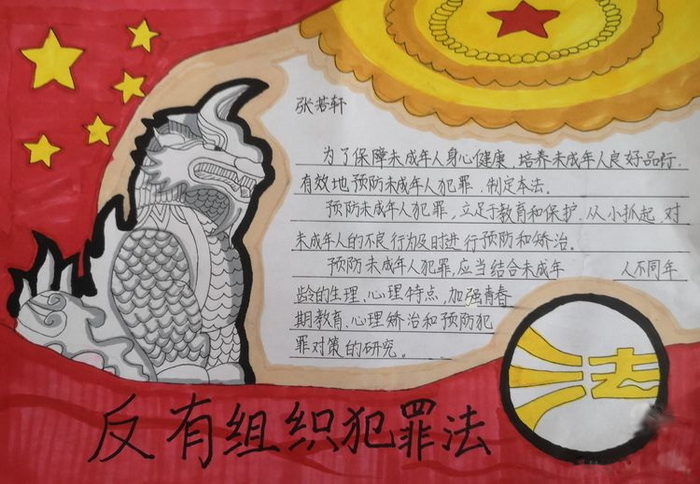 张若轩
为了保障未成年人身心健康,培养未成年人良好品行,
有效地预防未成年人犯罪,制定本法.
预防未成年人犯罪,立足于教育和保护.从小抓起,对
未成年人的不良行为及时进行预防和矫治。
预防未成年人犯罪,应当结合未成年 人不同年
龄的生理、心理特点,加强青春
期教育、心理矫治和预防犯
罪对策的研究。
法
反有组织犯罪法